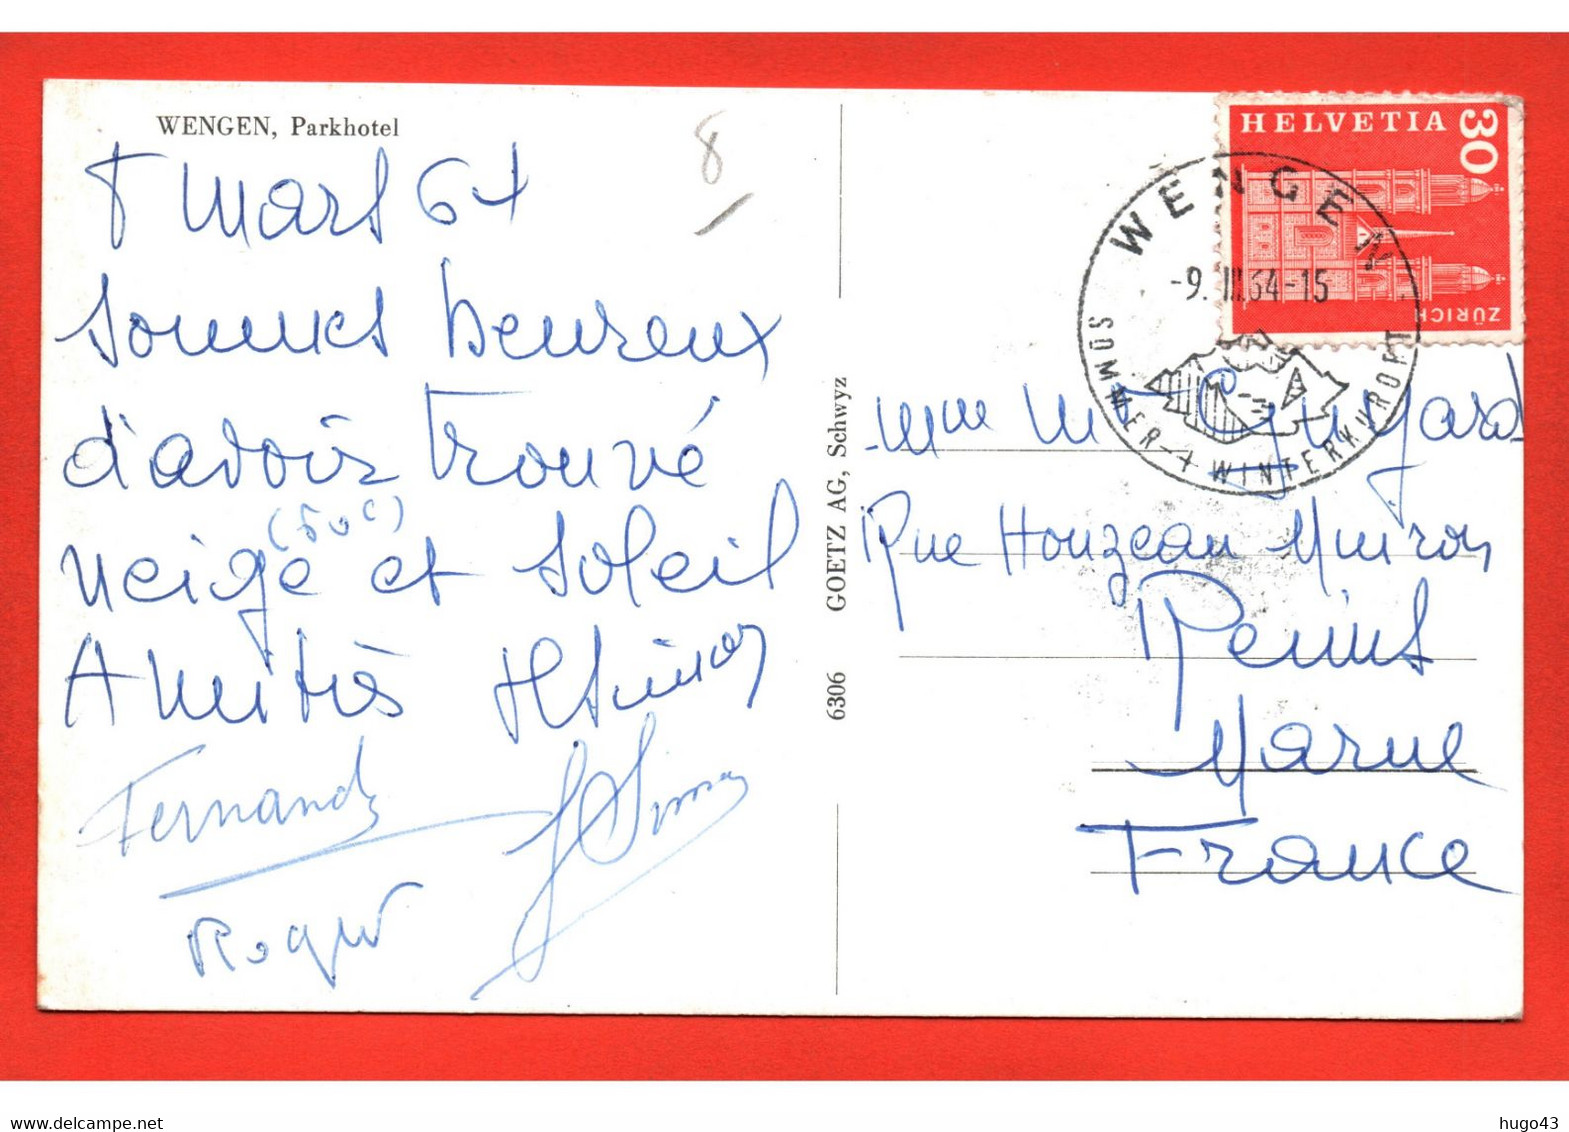 WENGEN, Parkhotel
8
8 Mars 64
Sommes heureux
d'avoir trouvé
neige (50c) et soleil
Amitiés
Fernande
Roger
6306 GOETZ AG, Schwyz
HELVETIA
30
ZÜRICH
WENGEN
-9.III.64-15
SOMMER + WINTERKURORT
Mme
Rue Houzeau Muiron
Reims
Marne
France
www.delcampe.net
hugo43